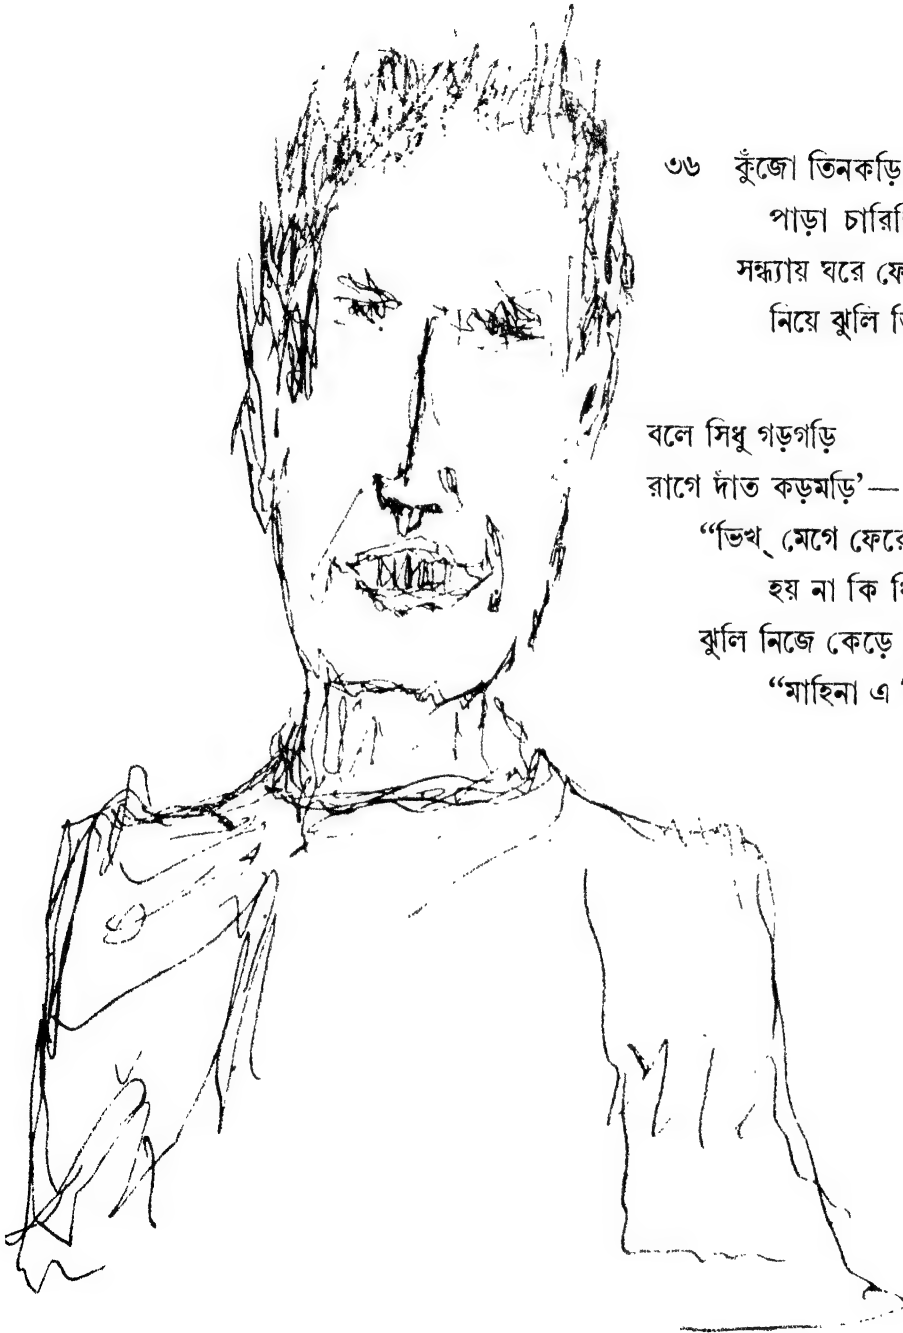 ৩৬ কুঁজো তিনকড়ি
পাড়া চারি
সন্ধ্যায় ঘরে ফে
নিয়ে ঝুলি
বলে সিধু গড়গড়ি
রাগে দাঁত কড়মড়ি’—
“ভিখ্ মেগে ফেরে
হয় না কি
ঝুলি নিজে কেড়ে
“মাহিনা এ